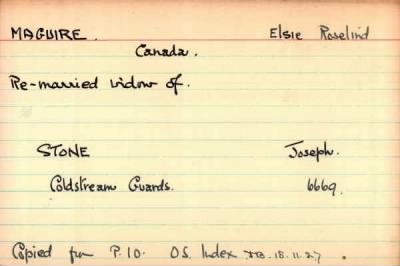 MAGUIRE. Elsie Roselind
Canada.
Re-married widow of.
STONE Joseph.
Coldstream Guards. 6669.
Copied from P.10. O.S. Index 18.11.27.